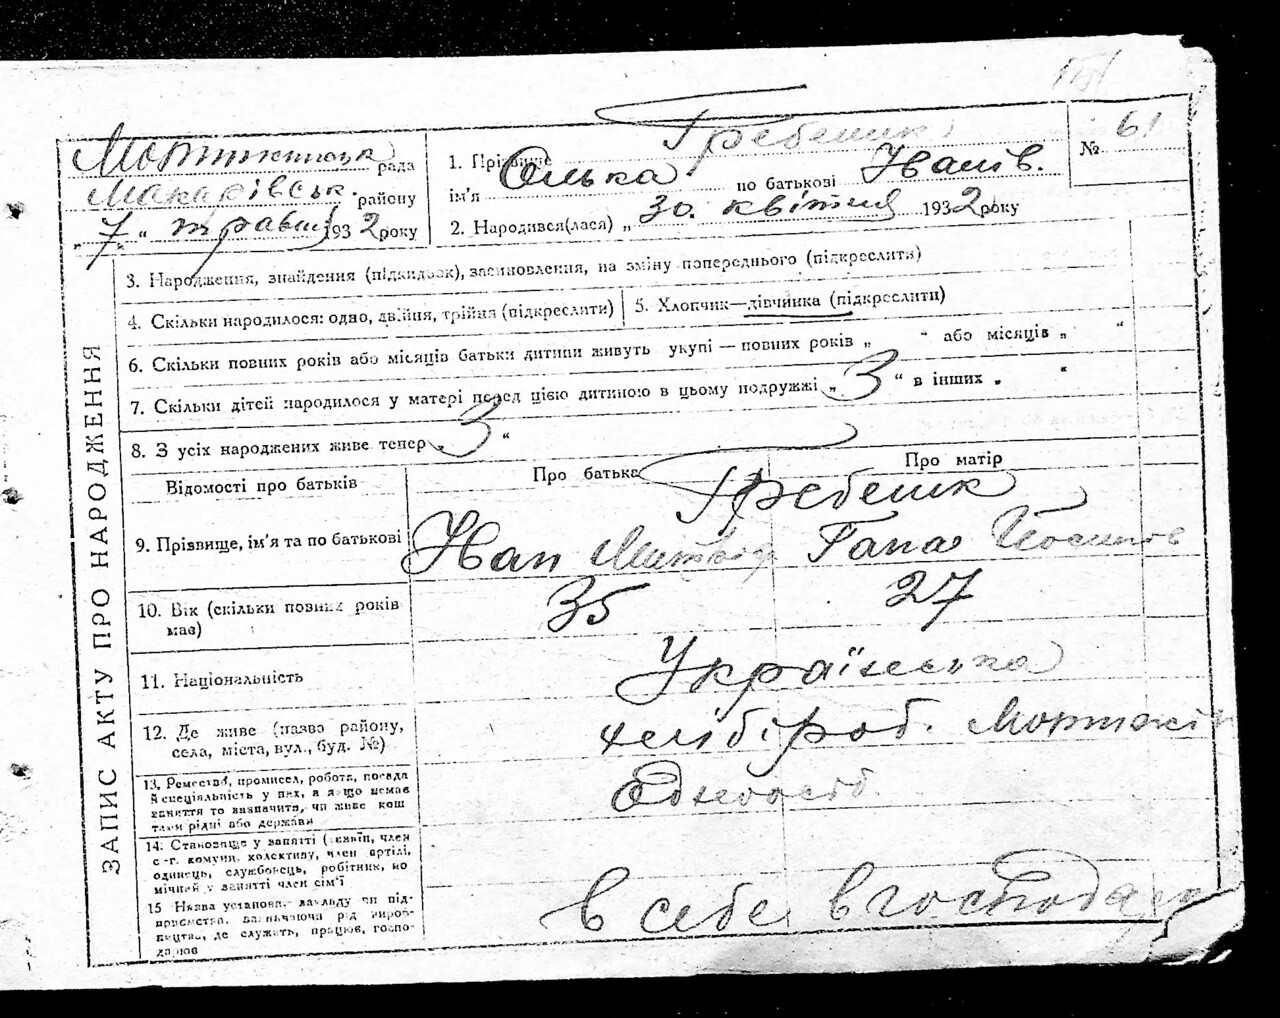 Гребеник № 61
Мотижинськ рада 1. Прізвище
Макарівськ. району ім'я Олька по батькові Іванів.
„ 7 “ травня 1932 року 2. Народився(лася) „ 30. квітня 1932 року
ЗАПИС АКТУ ПРО НАРОДЖЕННЯ
3. Народження, знайдення (підкидьок), всиновлення, на зміну попереднього (підкреслити)
4. Скільки народилося: одно, двійня, трійня (підкреслити) 5. Хлопчик—дівчинка (підкреслити)
6. Скільки повних років або місяців батьки дитини живуть укупі — повних років „ “ або місяців „ “
7. Скільки дітей народилося у матері перед цією дитиною в цьому подружжі „ 3 “ в інших „ “
8. З усіх народжених живе тепер „ 3 “
Відомості про батьків Про батька Про матір
Гребеник
9. Прізвище, ім'я та по батькові Іван Гана
10. Вік (скільки повних років має) 35 27
11. Національність Українська
12. Де живе (назва району,
села, міста, вул., буд. №)
13. Ремество, промисел, робота, посада
й спеціяльність у них, а якщо немає
заняття то зазначити, чи живе кош
тами рідні або держави
14. Становище у занятті (хазяїн, член
с.-г. комуни, колективу, член артілі,
одинець, службовець, робітник, по
мічний у занятті член сім'ї
15 Назва установи, закладу чи під-
приємства, зазначаючи рід вироб-
ництва, де служить, працює, госпо-
дарює
хлібороб. Мотижин
Одноосіб.
в себе в господар